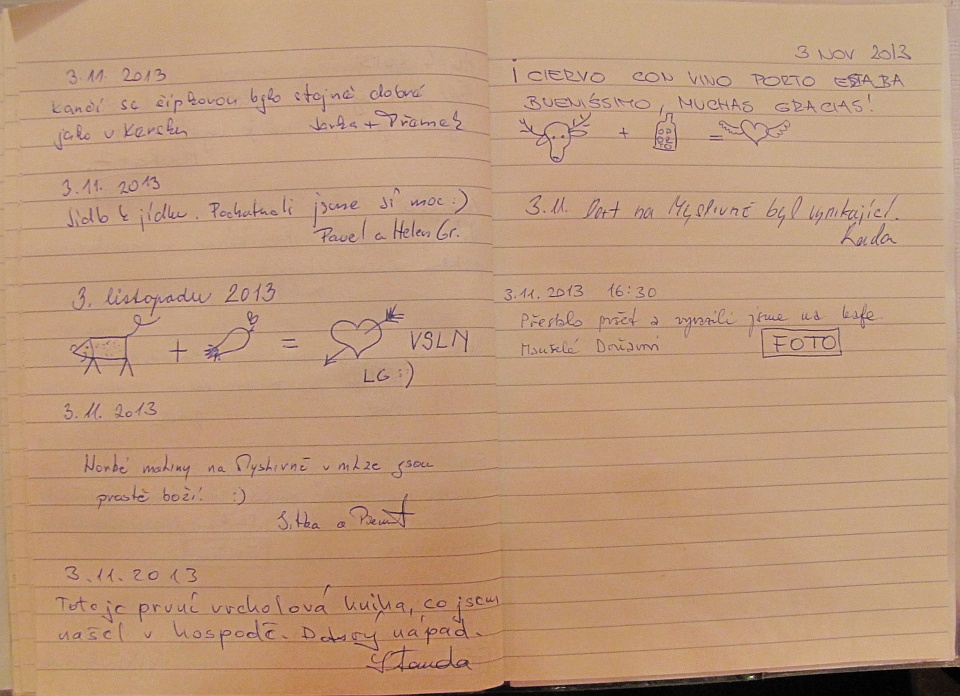 3.11. 2013
kančí se šípkovou bylo stejně dobré
jako v Kersku
Jarka + Přemek
3.11. 2013
Sidlo k jídlu. Pochutnali jsme si moc :)
Pavel a Helen Gr.
3. listopadu 2013
+ = VSLN
LG :)
3.11. 2013
Horké maliny na Myslivně v mlze jsou
prostě boží! :)
Jitka a
3.11.2013
Toto je první vrcholová kniha, co jsem
našel v hospodě. Dobrý nápad.
Standa
3 NOV 2013
¡ CIERVO CON VINO PORTO ESTABA
BUENÍSSIMO, MUCHAS GRACIAS!
+ =
3.11. Dort na Myslivně byl vynikající.
Lada
3.11. 2013 16:30
Přestalo pršet a vyrazili jsme na kafe.
Manželé
FOTO